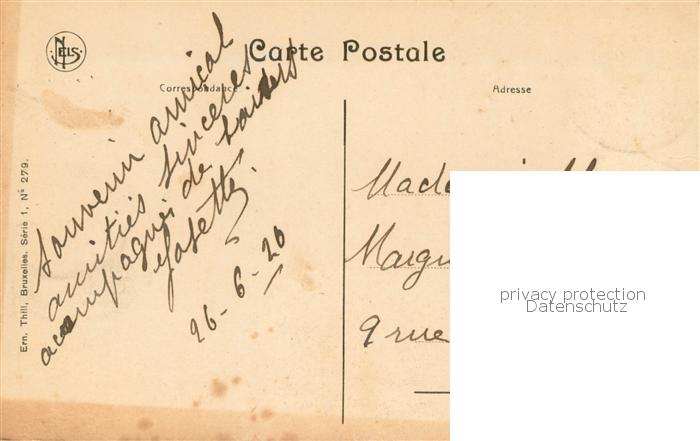 NELS
Carte Postale
Correspondance
Adresse
Ern. Thill, Bruxelles. Série 1, N° 279.
Souvenir amical
amitiés sincères
acompagnés de baisers
Josette.
26-6-20
Made
Margu
9 rue
privacy protection
Datenschutz